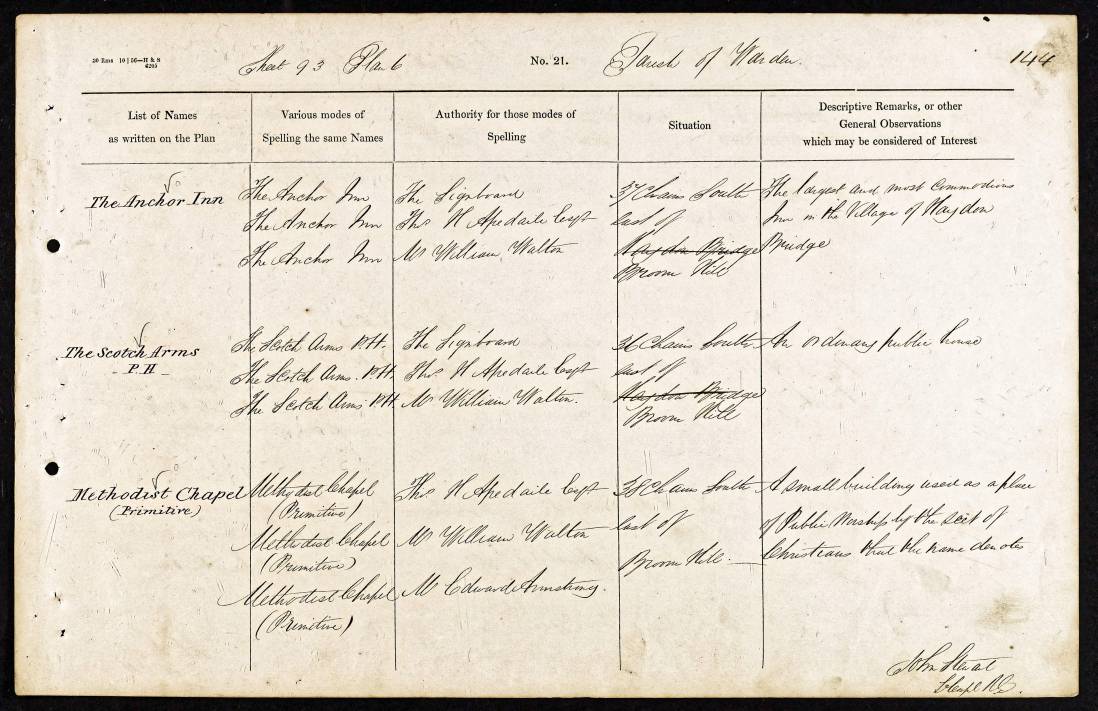 20 Rms 10 | 56—H & S
6205
Sheet 93 Plan 6
No. 21.
Parish of Warden.
144
List of Names
as written on the Plan
Various modes of
Spelling the same Names
Authority for those modes of
Spelling
Situation
Descriptive Remarks, or other
General Observations
which may be considered of Interest
The Anchor Inn
The Anchor Inn
The Anchor Inn
The Anchor Inn
The Signboard
Thos H Apedaile Esqr
Mr William Walton
37 Chains South
East of
Haydon Bridge
Broom Hill
The largest and most commodious
Inn in the Village of Haydon
Bridge
The Scotch Arms
P. H
The Scotch Arms P.H.
The Scotch Arms. P.H.
The Scotch Arms. P.H.
The Signboard
Thos H Apedaile Esqr
Mr William Walton.
36 Chains South
East of
Haydon Bridge
Broom Hill
An ordinary public house
Methodist Chapel
(Primitive)
Methodist Chapel
(Primitive)
Methodist Chapel
(Primitive)
Methodist Chapel
(Primitive)
Thos H Apedaile Esqr
Mr William Walton
Mr Edward Armstrong.
38 Chains South
East of
Broom Hill.
A small building used as a place
of Public Worship by the sect of
Christians that the name denotes
John Stewart
R.E.